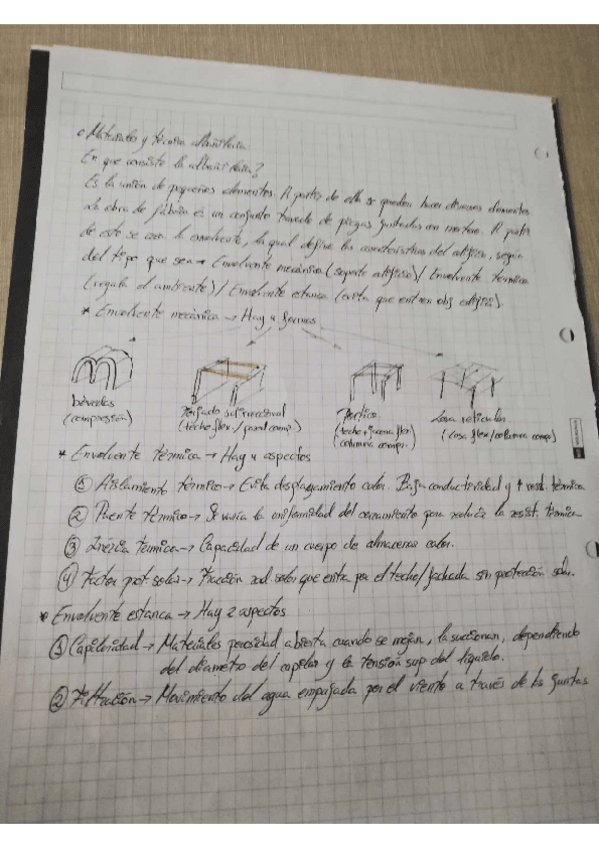 • Materiales y técnica albañilería
En que consiste la albañilería?
Es la unión de pequeños elementos. A partir de ella se pueden hacer diversos elementos
obra de fábrica es un conjunto trabado de piezas juntadas con mortero. A partir
de esto se crea la envolvente, la qual define las características del edificio, según
del tipo que sea → Envolvente mecánica (soporte edificio) / Envolvente térmica
(regula el ambiente) / Envolvente estanca (evita que entren obj edificio).
* Envolvente mecánica → Hay 4 formas
bóvedas
(compresión)
Forjado unidireccional
(techo flex. / pared comp.)
Pórtico
(techo, jacena flex/
columna compr.)
Losa reticular
(losa flex/columna comp)
* Envolvente térmica → Hay 4 aspectos
① Aislamiento térmico → Evita desplazamiento calor. Baja conductividad y ↑ resist. térmica
② Puente térmico → Se varía la uniformidad del cerramiento para reducir la resist. térmica
③ Inercia térmica → Capacidad de un cuerpo de almacenar calor.
④ Factor prot solar → Fracción rad solar que entra por el techo/fachada sin protección solar.
* Envolvente estanca → Hay 2 aspectos
① Capilaridad → Materiales porosidad abierta cuando se mojan, la succionan, dependiendo
del diametro del capilar y la tensión sup del líquido.
② Filtración → Movimiento del agua empujada por el viento a través de las juntas